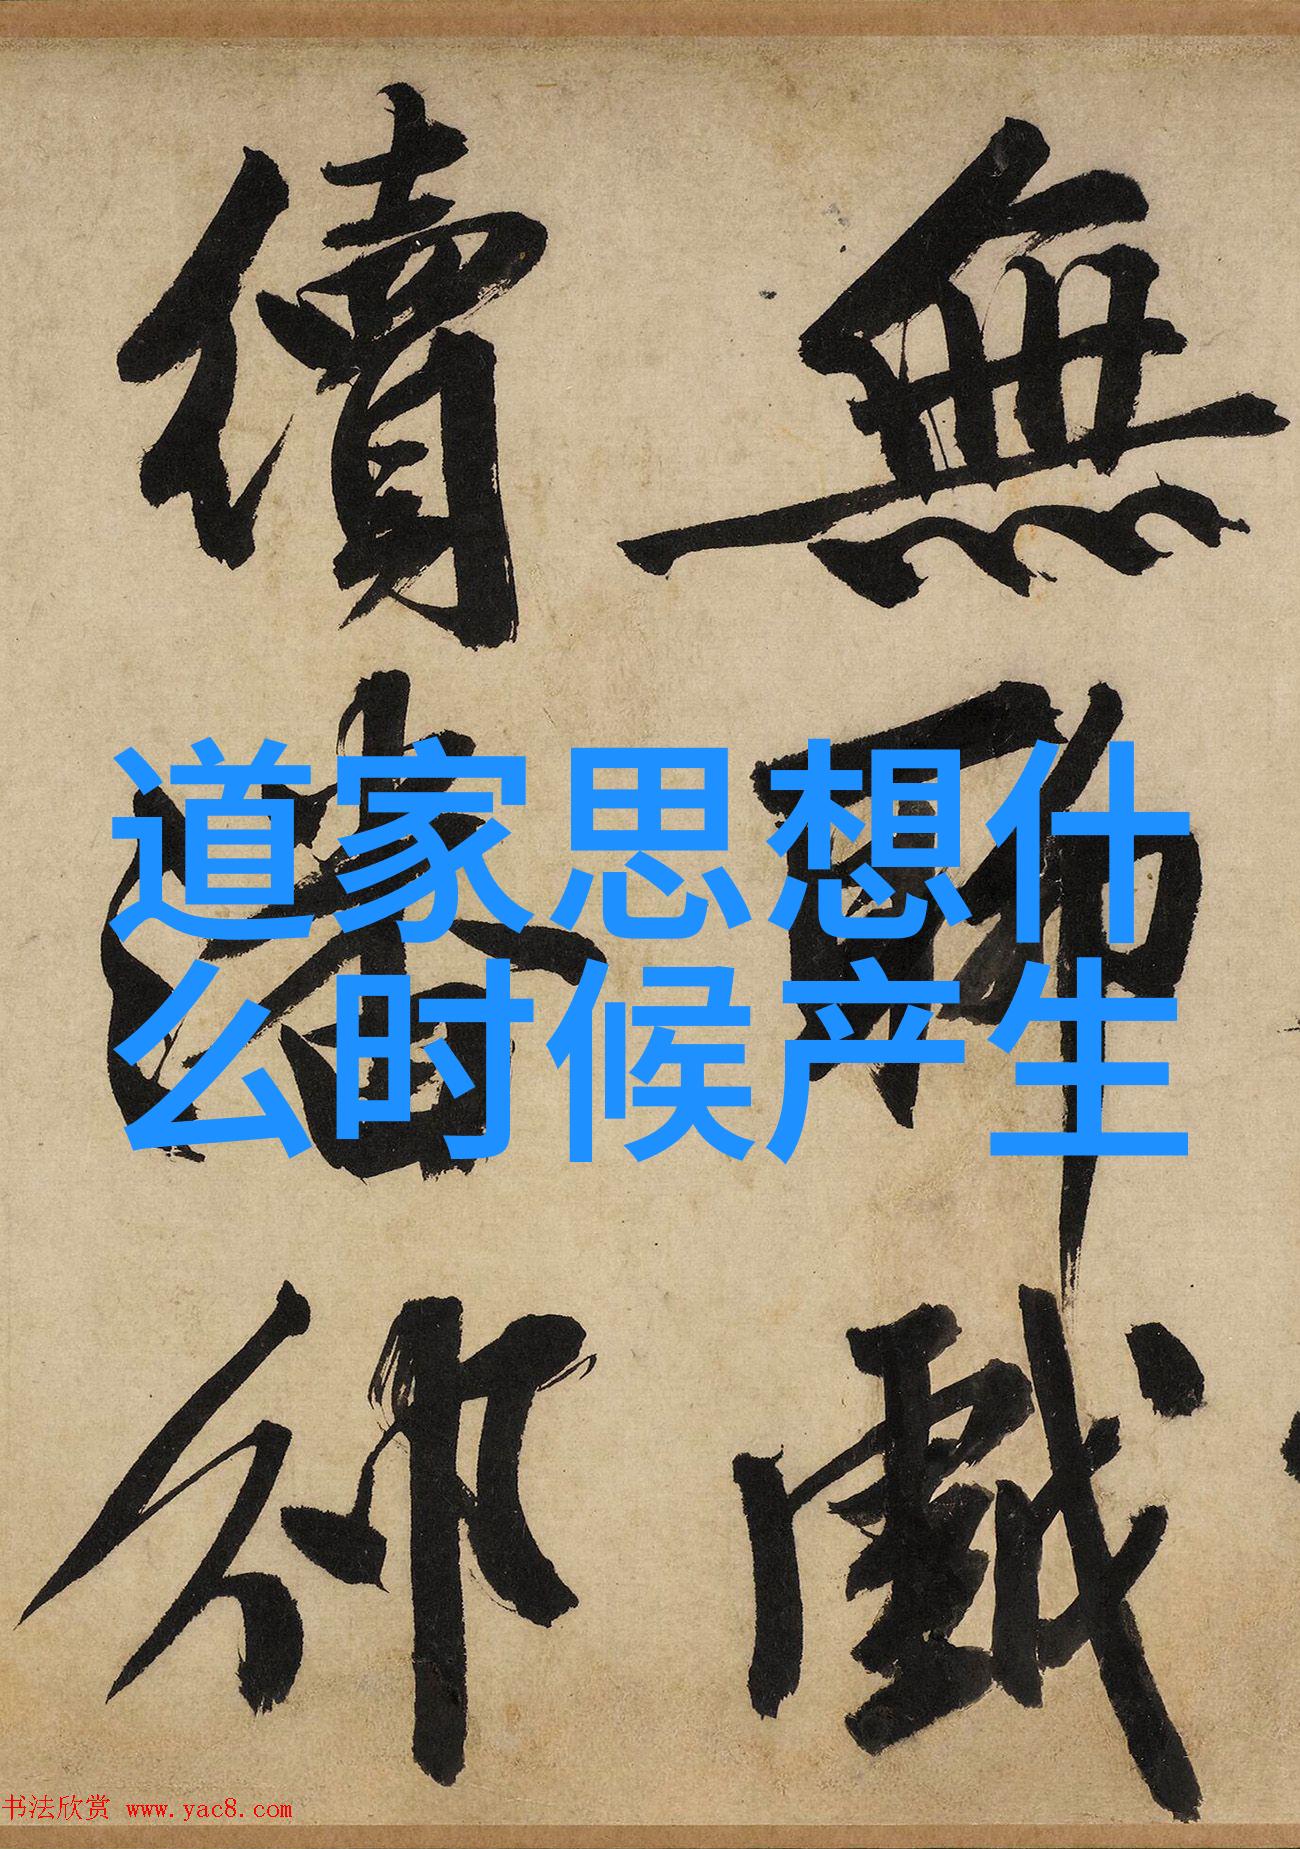 無聊戲
續潘邠
道家思想什
么时候产生
书法欣赏 www.yac8.com